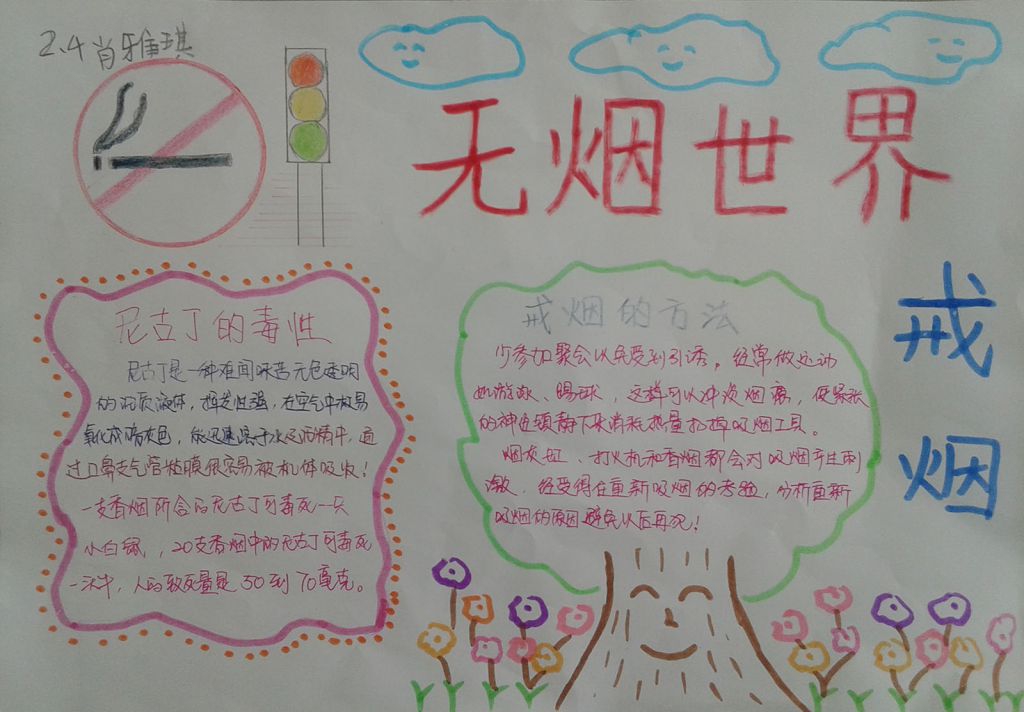 2.4肖雅琪
无烟世界
戒烟
尼古丁的毒性
尼古丁是一种难闻味苦无色透明
的油质液体，挥发性强，在空气中极易
氧化成暗灰色，能迅速溶于水及酒精中，通
过口鼻支气管粘膜很容易被机体吸收！
一支香烟所含的尼古丁可毒死一只
小白鼠，20支香烟中的尼古丁可毒死
一头牛，人的致死量是50到70毫克。
戒烟的方法
少参加聚会以免受到引诱。经常做运动
如游泳、踢球，这样可以冲淡烟瘾，使紧张
的神经镇静下来消耗热量扔掉吸烟工具。
烟灰缸、打火机和香烟都会对吸烟产生刺
激，经受得住重新吸烟的考验，分析重新
吸烟的原因避免以后再犯！